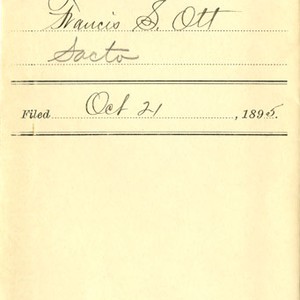 Francis S. Ott
Sacto
Filed Oct 21, 1895.